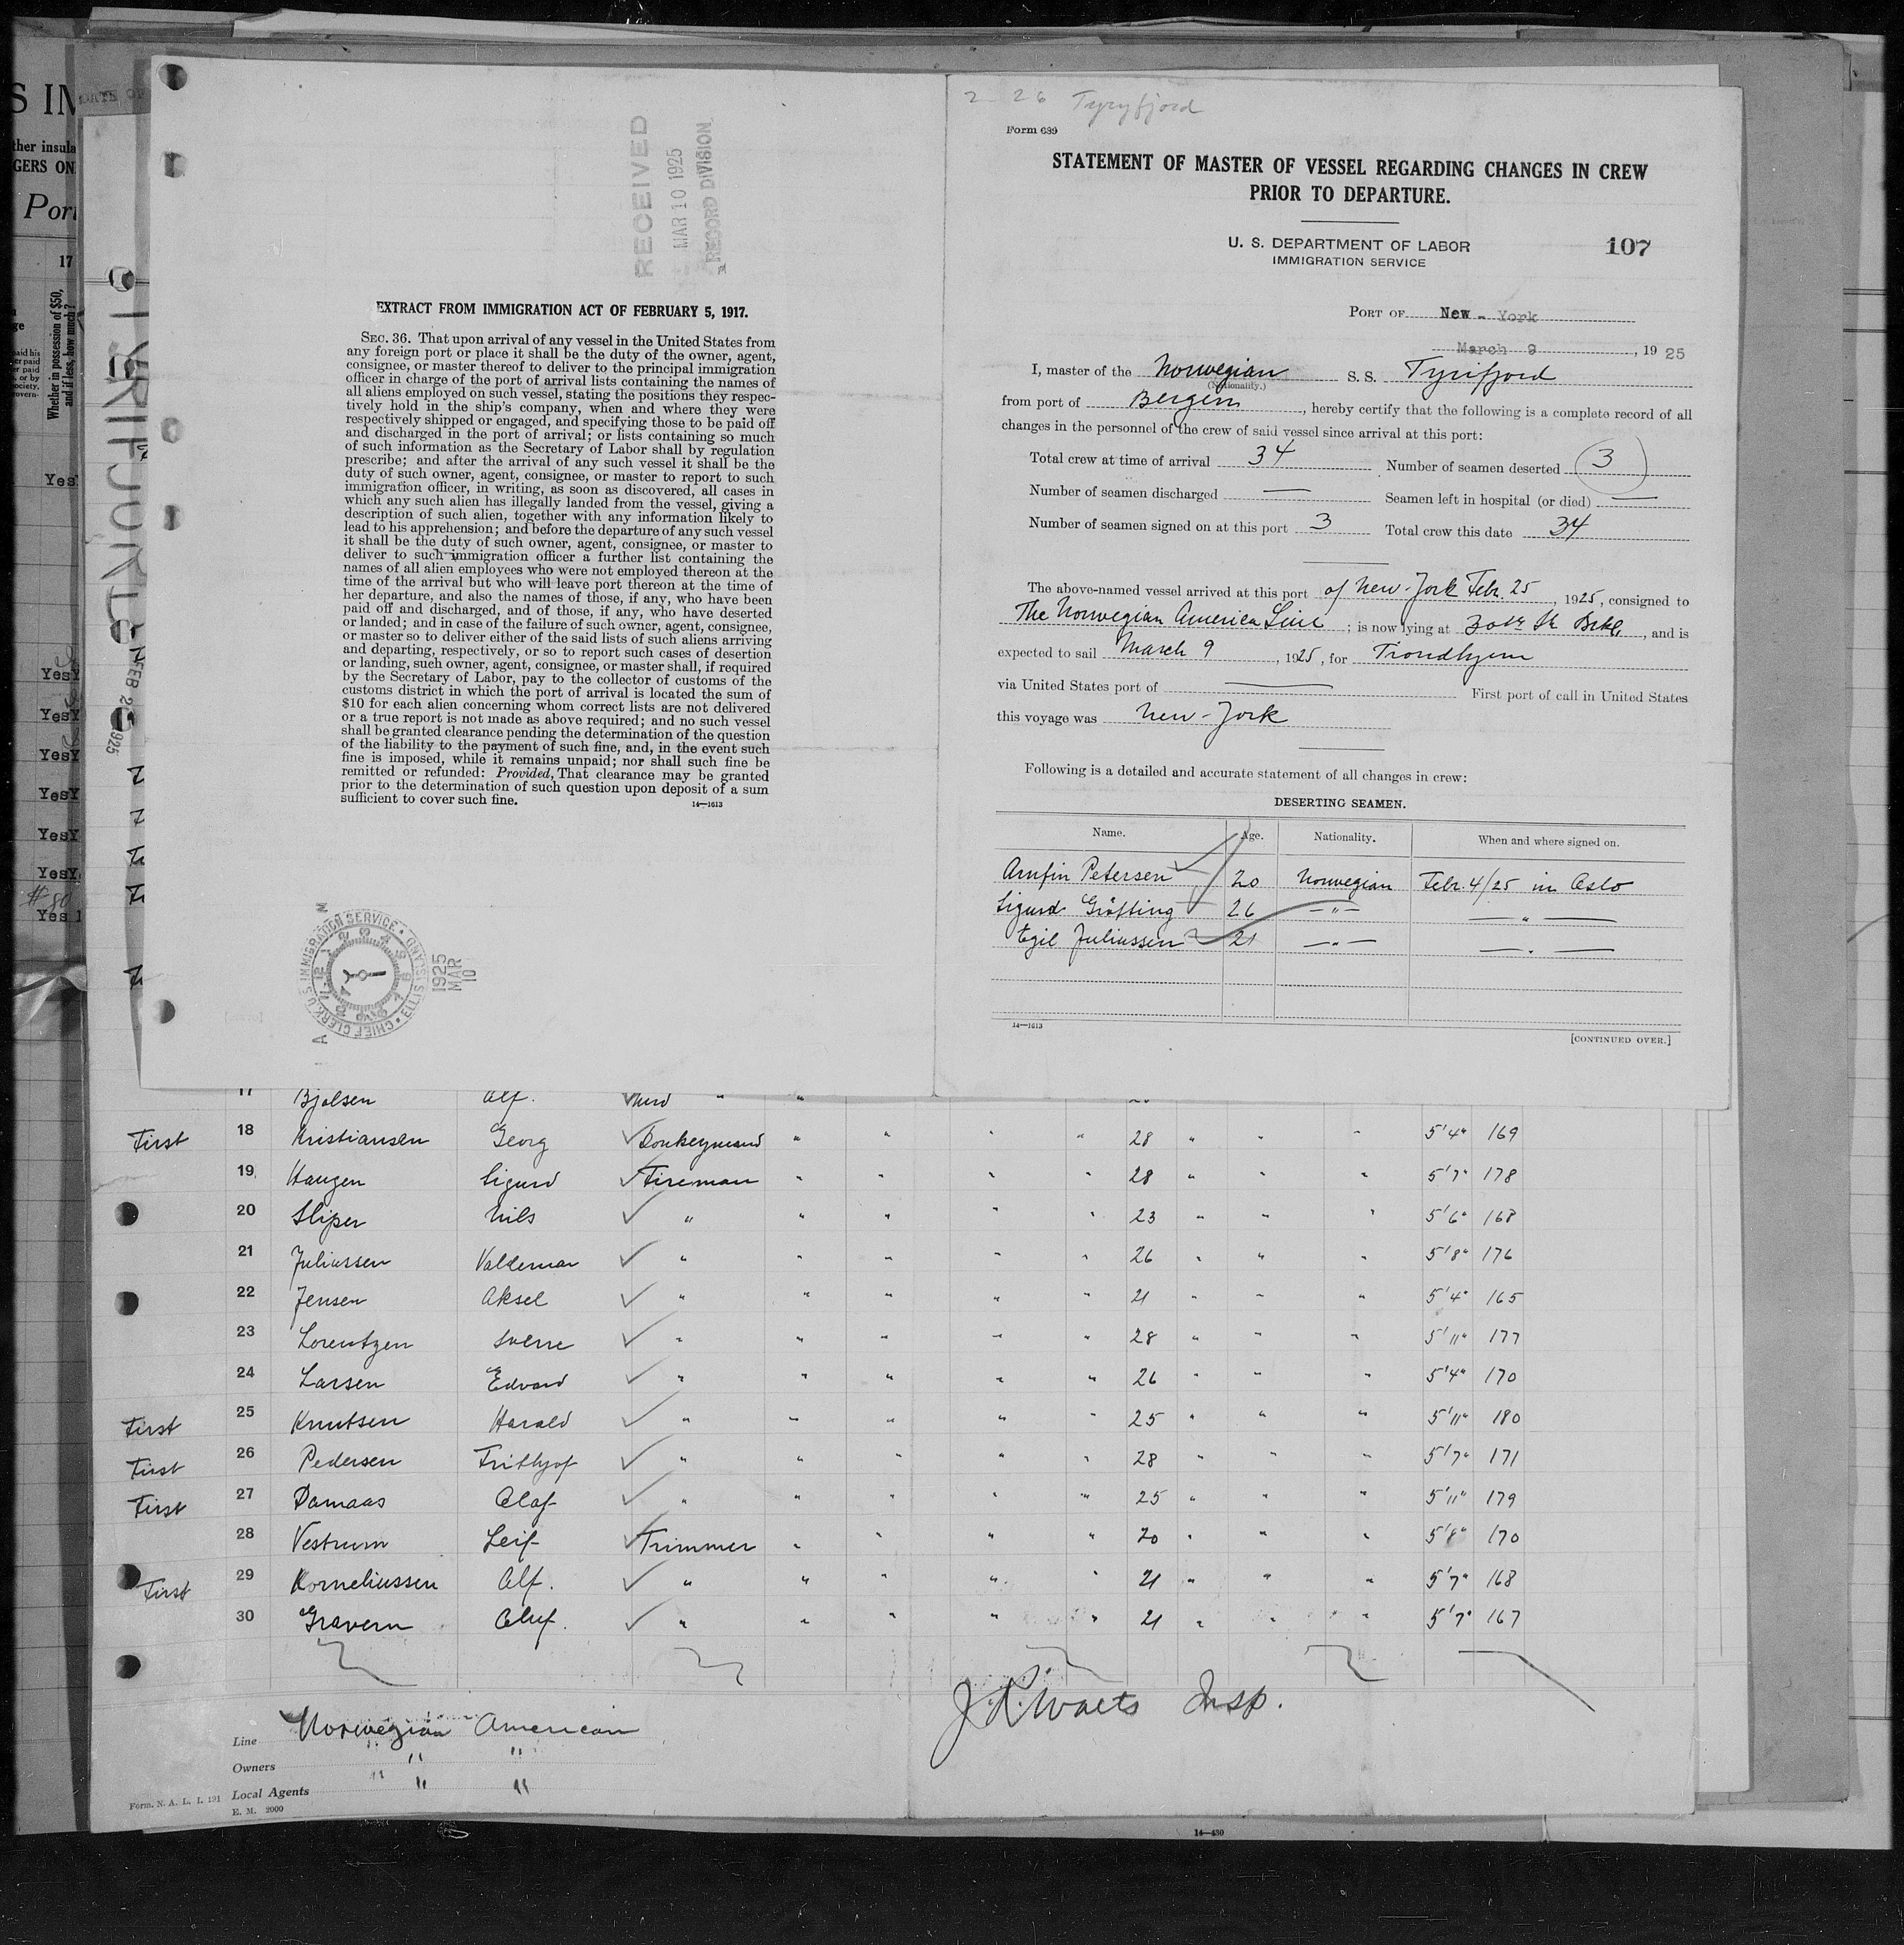 RECEIVED
MAR 10 1925
RECORD DIVISION
EXTRACT FROM IMMIGRATION ACT OF FEBRUARY 5, 1917.
SEC. 36. That upon arrival of any vessel in the United States from
any foreign port or place it shall be the duty of the owner, agent,
consignee, or master thereof to deliver to the principal immigration
officer in charge of the port of arrival lists containing the names of
all aliens employed on such vessel, stating the positions they respec-
tively hold in the ship's company, when and where they were
respectively shipped or engaged, and specifying those to be paid off
and discharged in the port of arrival; or lists containing so much
of such information as the Secretary of Labor shall by regulation
prescribe; and after the arrival of any such vessel it shall be the
duty of such owner, agent, consignee, or master to report to such
immigration officer, in writing, as soon as discovered, all cases in
which any such alien has illegally landed from the vessel, giving a
description of such alien, together with any information likely to
lead to his apprehension; and before the departure of any such vessel
it shall be the duty of such owner, agent, consignee, or master to
deliver to such immigration officer a further list containing the
names of all alien employees who were not employed thereon at the
time of the arrival but who will leave port thereon at the time of
her departure, and also the names of those, if any, who have been
paid off and discharged, and of those, if any, who have deserted
or landed; and in case of the failure of such owner, agent, consignee,
or master so to deliver either of the said lists of such aliens arriving
and departing, respectively, or so to report such cases of desertion
or landing, such owner, agent, consignee, or master shall, if required
by the Secretary of Labor, pay to the collector of customs of the
customs district in which the port of arrival is located the sum of
$10 for each alien concerning whom correct lists are not delivered
or a true report is not made as above required; and no such vessel
shall be granted clearance pending the determination of the question
of the liability to the payment of such fine, and, in the event such
fine is imposed, while it remains unpaid; nor shall such fine be
remitted or refunded: Provided, That clearance may be granted
prior to the determination of such question upon deposit of a sum
sufficient to cover such fine.
14—1613
U.S. IMMIGRATION SERVICE • ELLIS ISLAND • CHIEF CLERK
1925 MAR 10
2 26 Tyryfjord
Form 689
STATEMENT OF MASTER OF VESSEL REGARDING CHANGES IN CREW
PRIOR TO DEPARTURE.
U. S. DEPARTMENT OF LABOR
IMMIGRATION SERVICE
107
PORT OF New - York
March 9, 1925
I, master of the Norwegian S. S. Tyrifjord
(Nationality.)
from port of Bergen, hereby certify that the following is a complete record of all
changes in the personnel of the crew of said vessel since arrival at this port:
Total crew at time of arrival 34 Number of seamen deserted 3
Number of seamen discharged — Seamen left in hospital (or died) —
Number of seamen signed on at this port 3 Total crew this date 34
The above-named vessel arrived at this port of New-York Febr. 25, 1925, consigned to
The Norwegian America Line; is now lying at 30th St Brkl, and is
expected to sail March 9, 1925, for Trondhjem
via United States port of — First port of call in United States
this voyage was New-York
Following is a detailed and accurate statement of all changes in crew:
DESERTING SEAMEN.
Name. Age. Nationality. When and where signed on.
Arnfin Petersen 20 Norwegian Febr. 4/25 in Oslo
Sigurd Gröfting 26 —"— —"—
Egil Juliussen 21 —"— —"—
14—1613
[CONTINUED OVER.]
17 Bjølsen Alf. "
First 18 Kristiansen Georg Donkeymand " " " " 28 " " " 5'4" 169
19 Haugen Sigurd Fireman " " " " 28 " " " 5'7" 178
20 Sliper Nils " " " " " 23 " " " 5'6" 168
21 Juliussen Valdemar " " " " " 26 " " " 5'8" 176
22 Jensen Aksel " " " " " 21 " " " 5'4" 165
23 Lorentzen Sverre " " " " " 28 " " " 5'11" 177
24 Larsen Edvard " " " " " 26 " " " 5'4" 170
First 25 Knutsen Harald " " " " " 25 " " " 5'11" 180
First 26 Pedersen Frithjof " " " " " 28 " " " 5'7" 171
First 27 Damaas Olaf " " " " " 25 " " " 5'11" 179
28 Vestrum Leif Trimmer " " " " 20 " " " 5'8" 170
First 29 Korneliussen Alf. " " " " " 21 " " " 5'7" 168
30 Gravern Oluf. " " " " " 21 " " " 5'7" 167
Line Norwegian American
Owners " "
Local Agents " "
Form. N. A. L. I. 191
E. M. 2000
Insp.
14—430